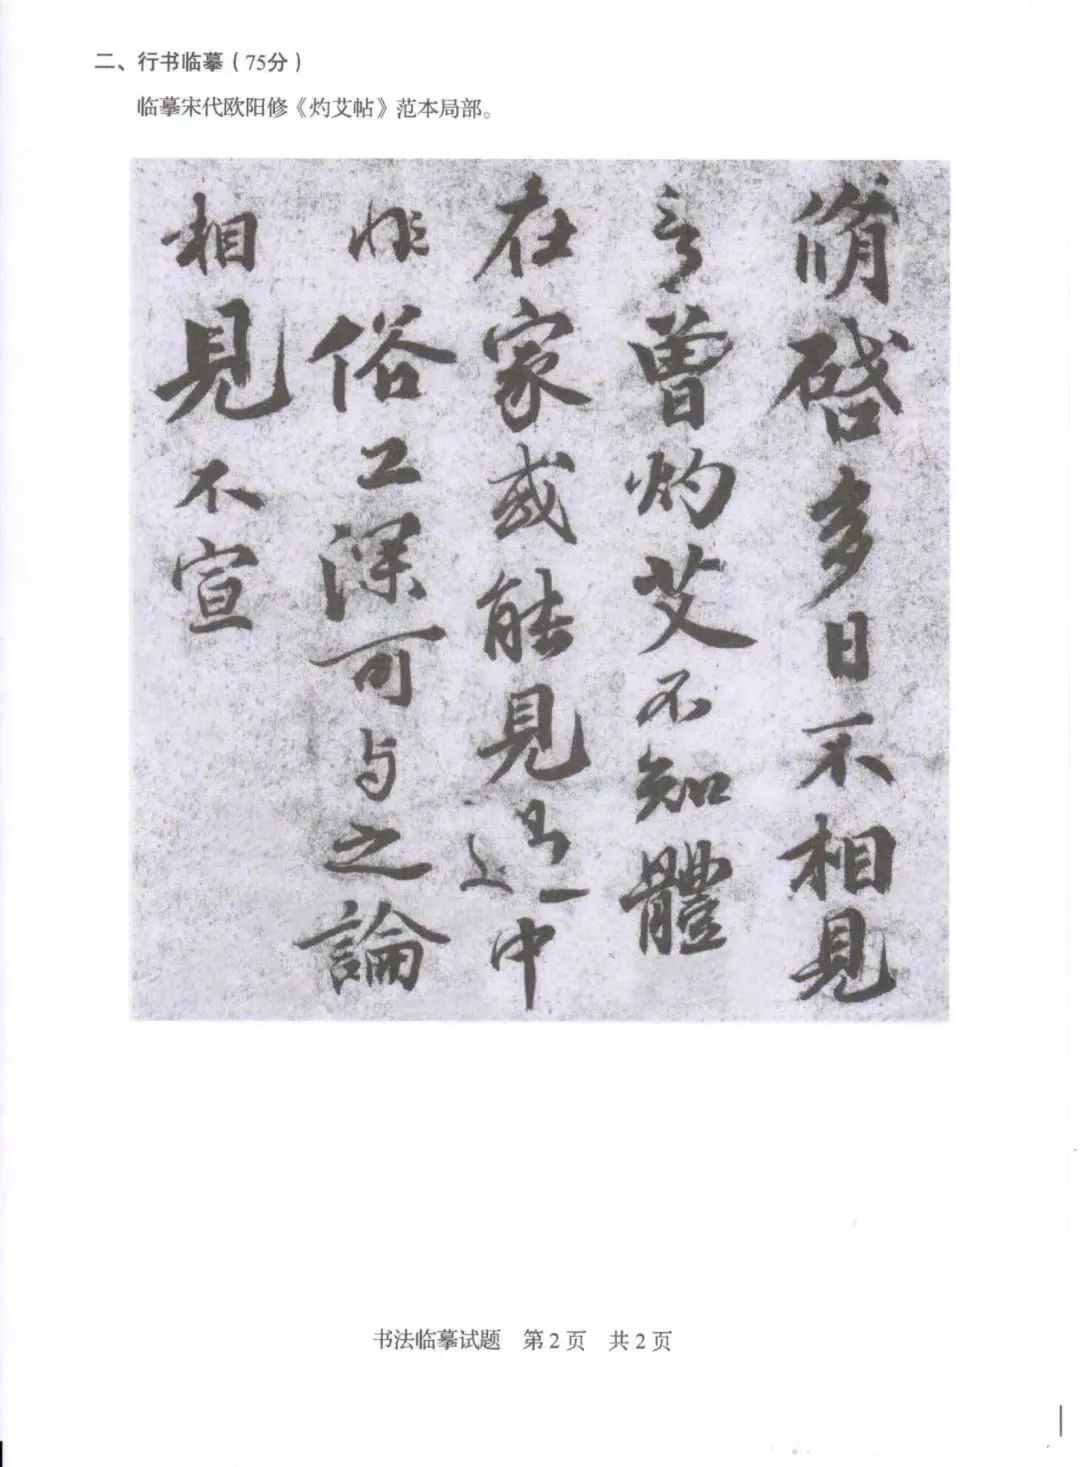 二、行书临摹（75分）
临摹宋代欧阳修《灼艾帖》范本局部。
脩啓多日不相見
言曾灼艾不知體
在家或能見過中
非俗工深可与之論
相見不宣
书法临摹试题 第2页 共2页